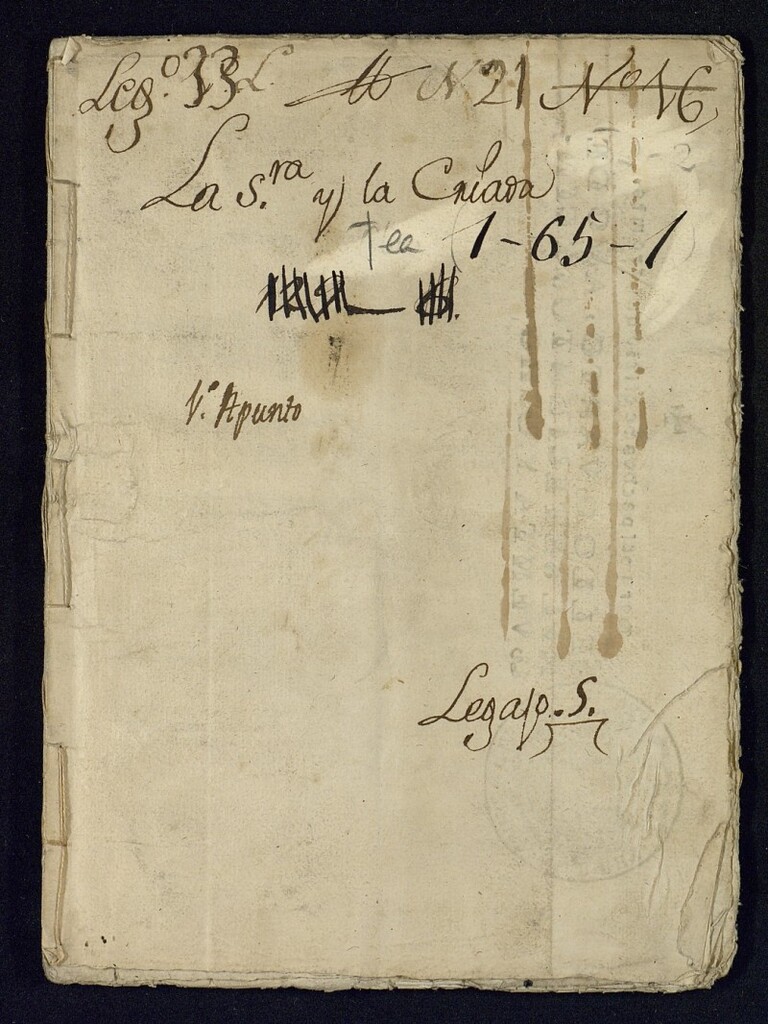 Leg.º 33 L. N 21 Nº 16,
La S.ra y la Criada
Tea (1-65-1)
1.º Apunto
Legajo. S.